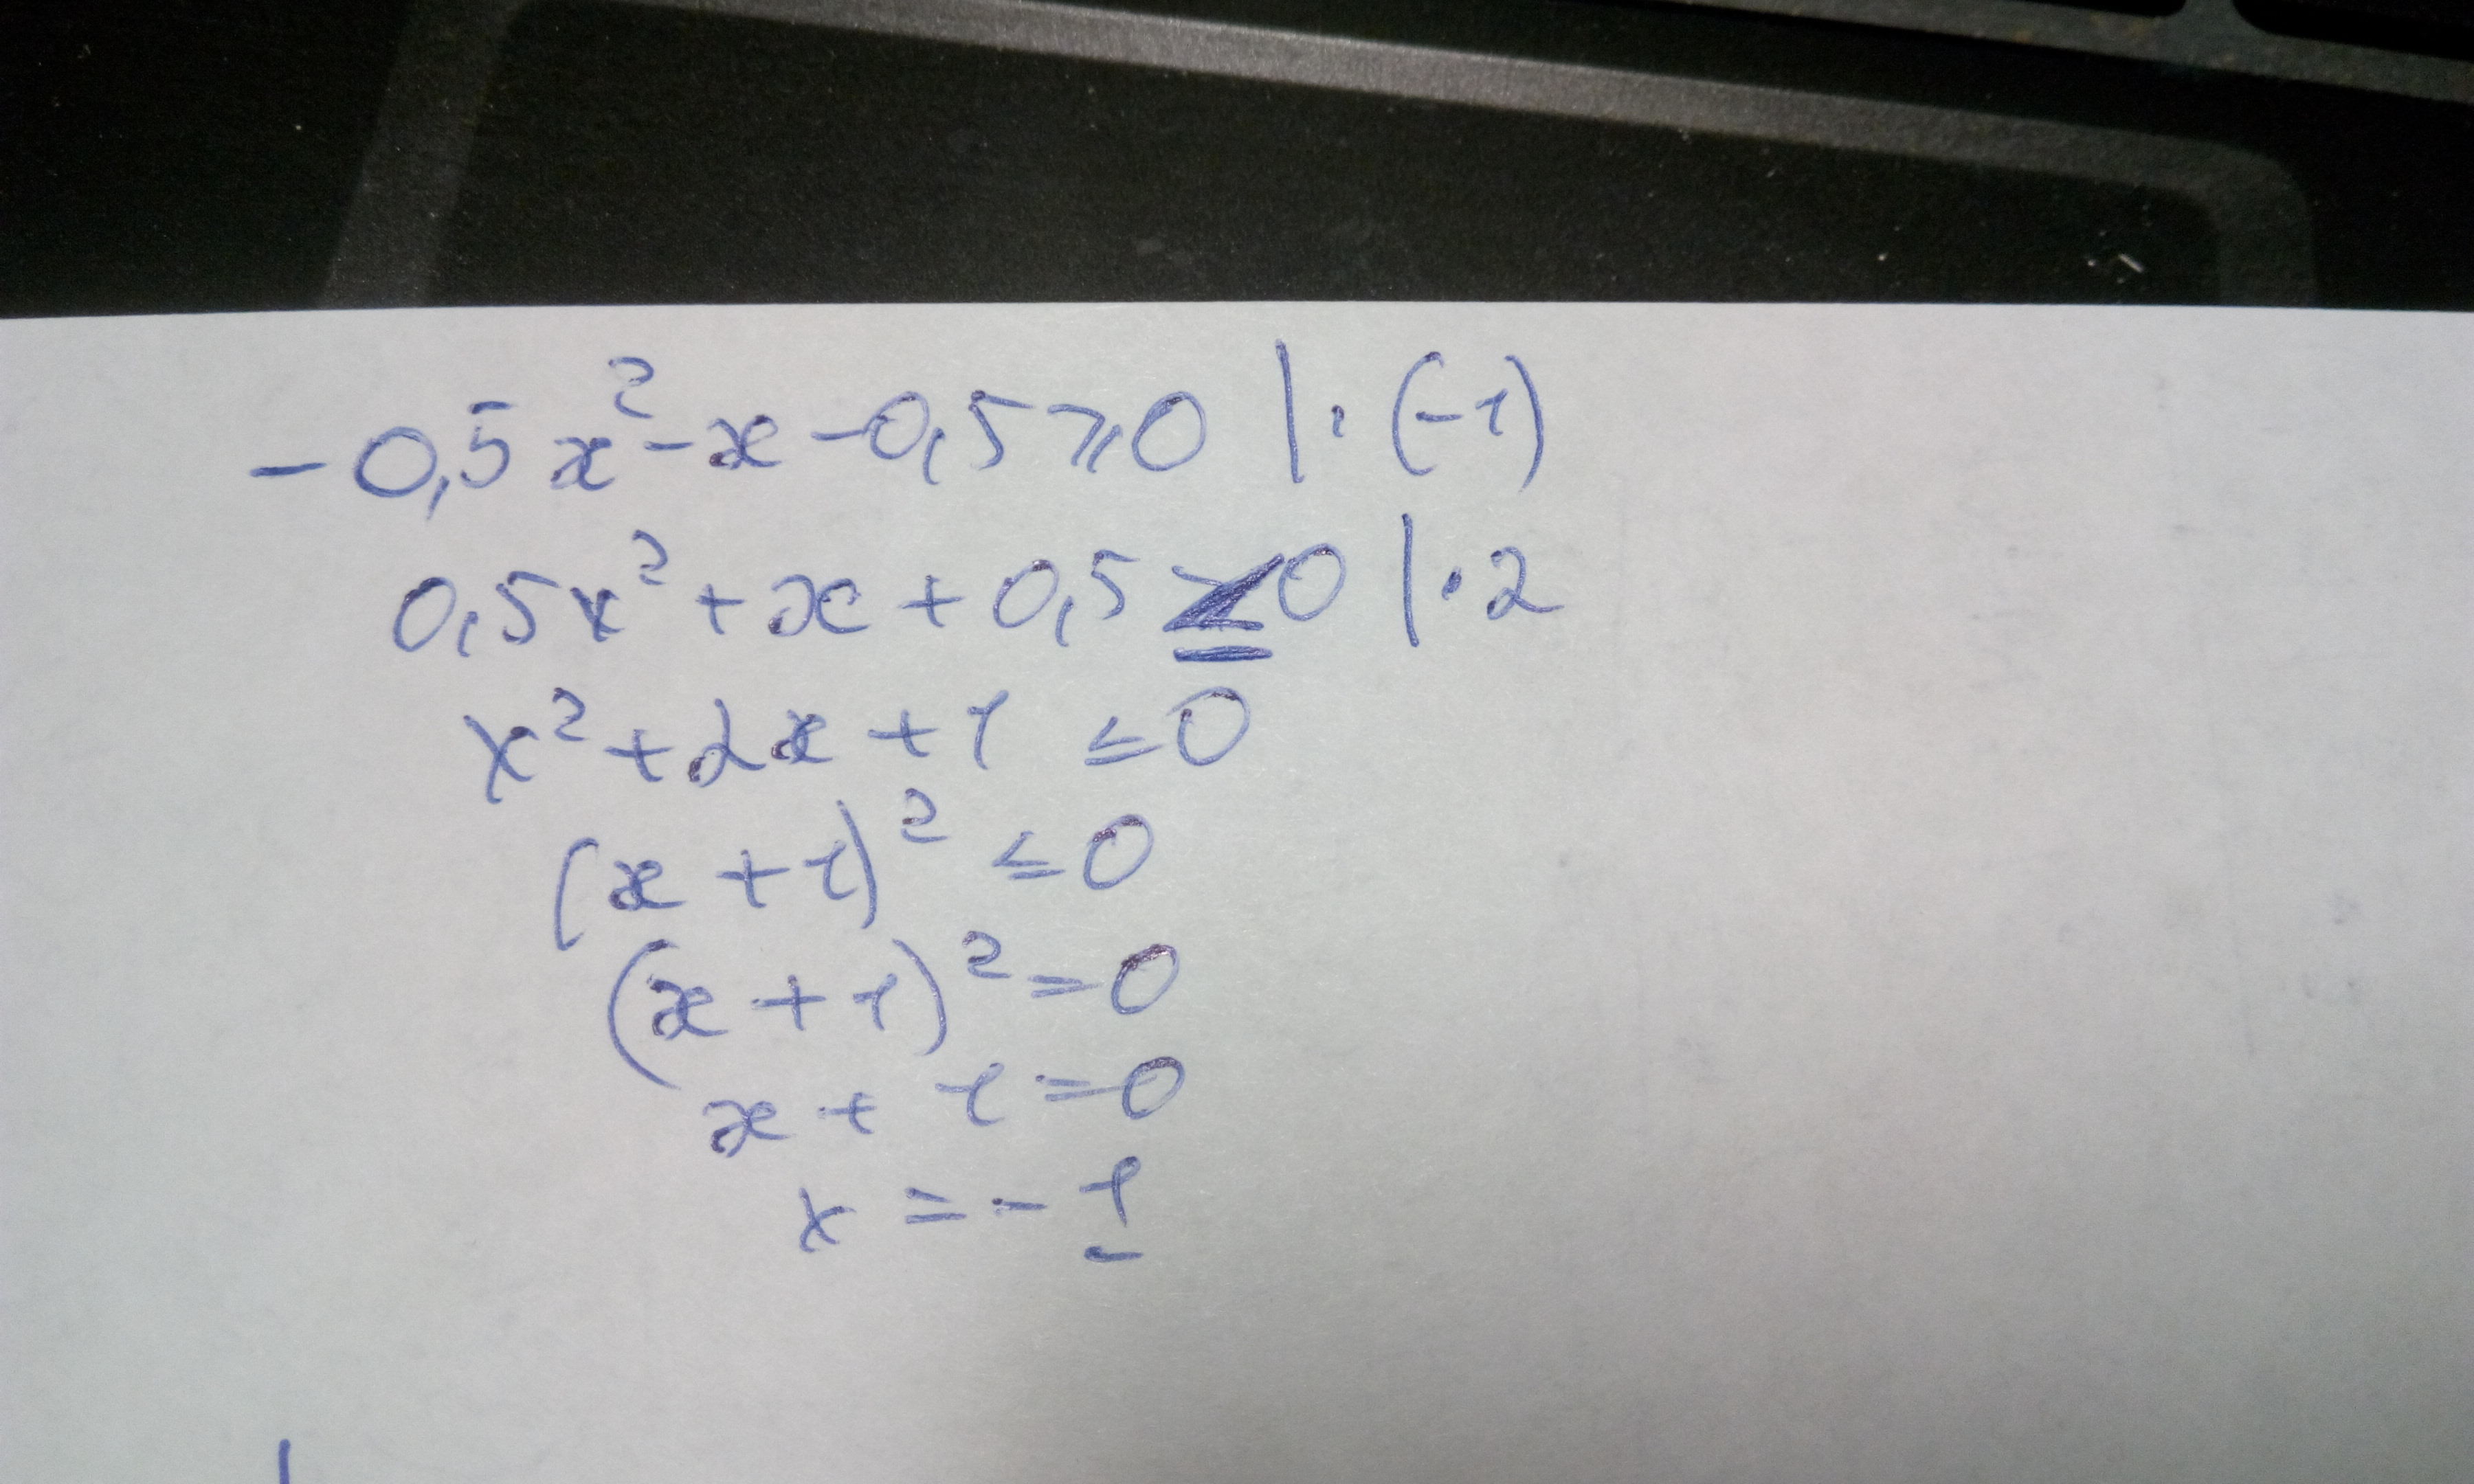 -0,5x²-x-0,5⩾0 |·(-1)
0,5x²+x+0,5≤0 |·2
x²+2x+1 ≤0
(x+1)² ≤0
(x+1)²=0
x+1=0
x=-1